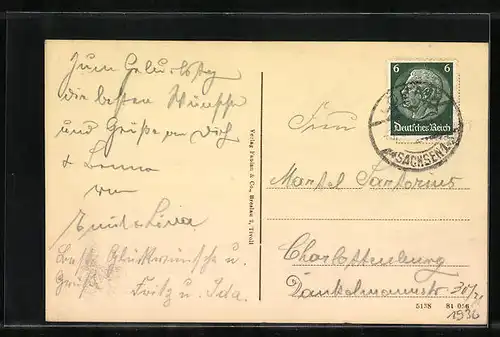 Zum Geburtstag
die besten Wünsche
und Grüße an Dich
+ Benno
von
Emil + Lina
Beste Glückwünsche u.
Grüße Fritz u. Ida.
Verlag Paulun & Co., Dresden
6 6
Deutsches Reich
SACHSEN
Frau
Sartorius
Charlottenburg
Dankelmannstr 30/31
5138 B4 056
1936